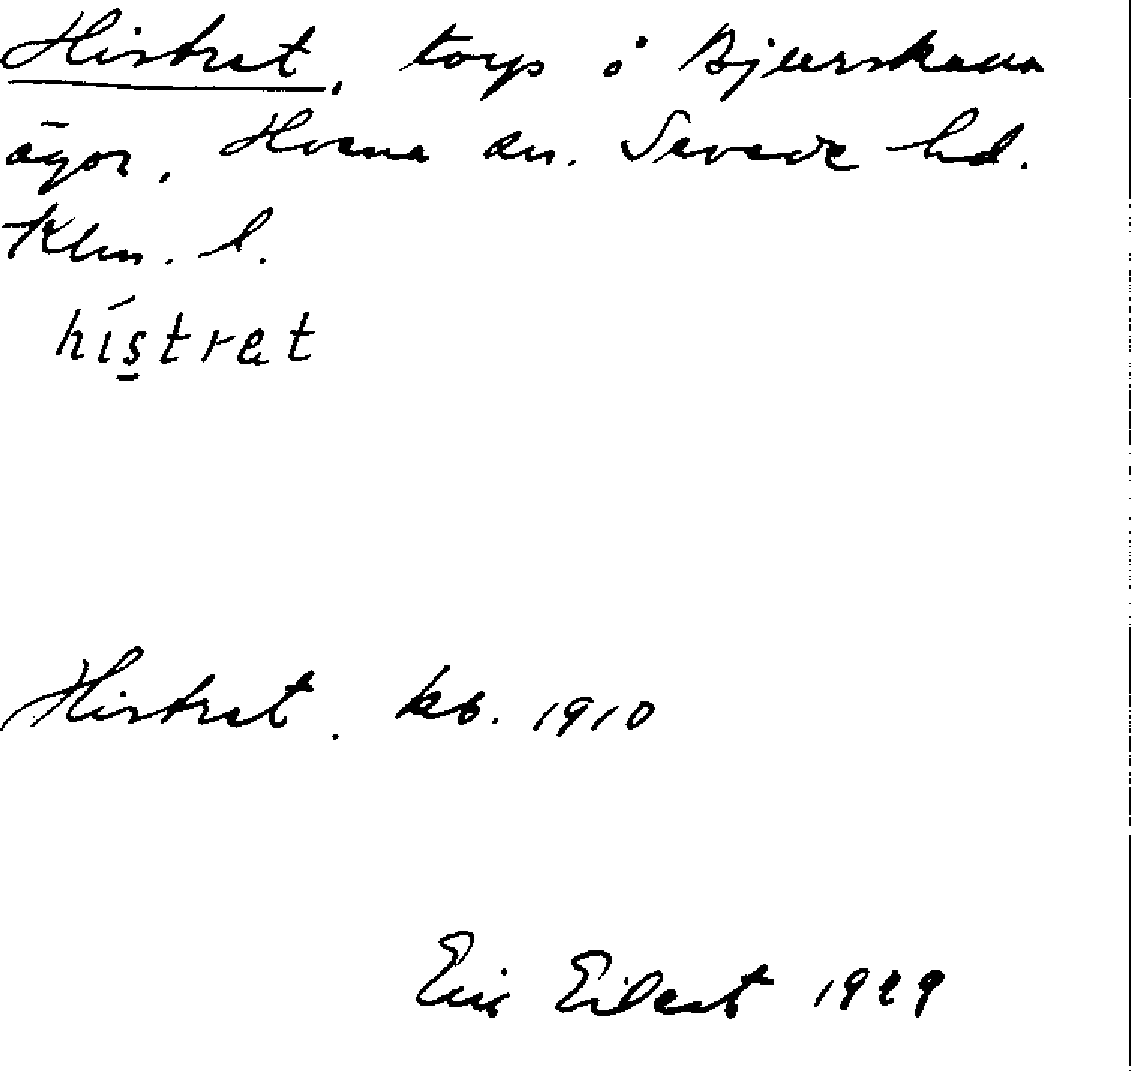 Histret, torp i Bjurskaun
ägor, Hvena sn. Sevede hd.
Klm. l.
hístret
Histret. kb. 1910
Eric Eilert 1929